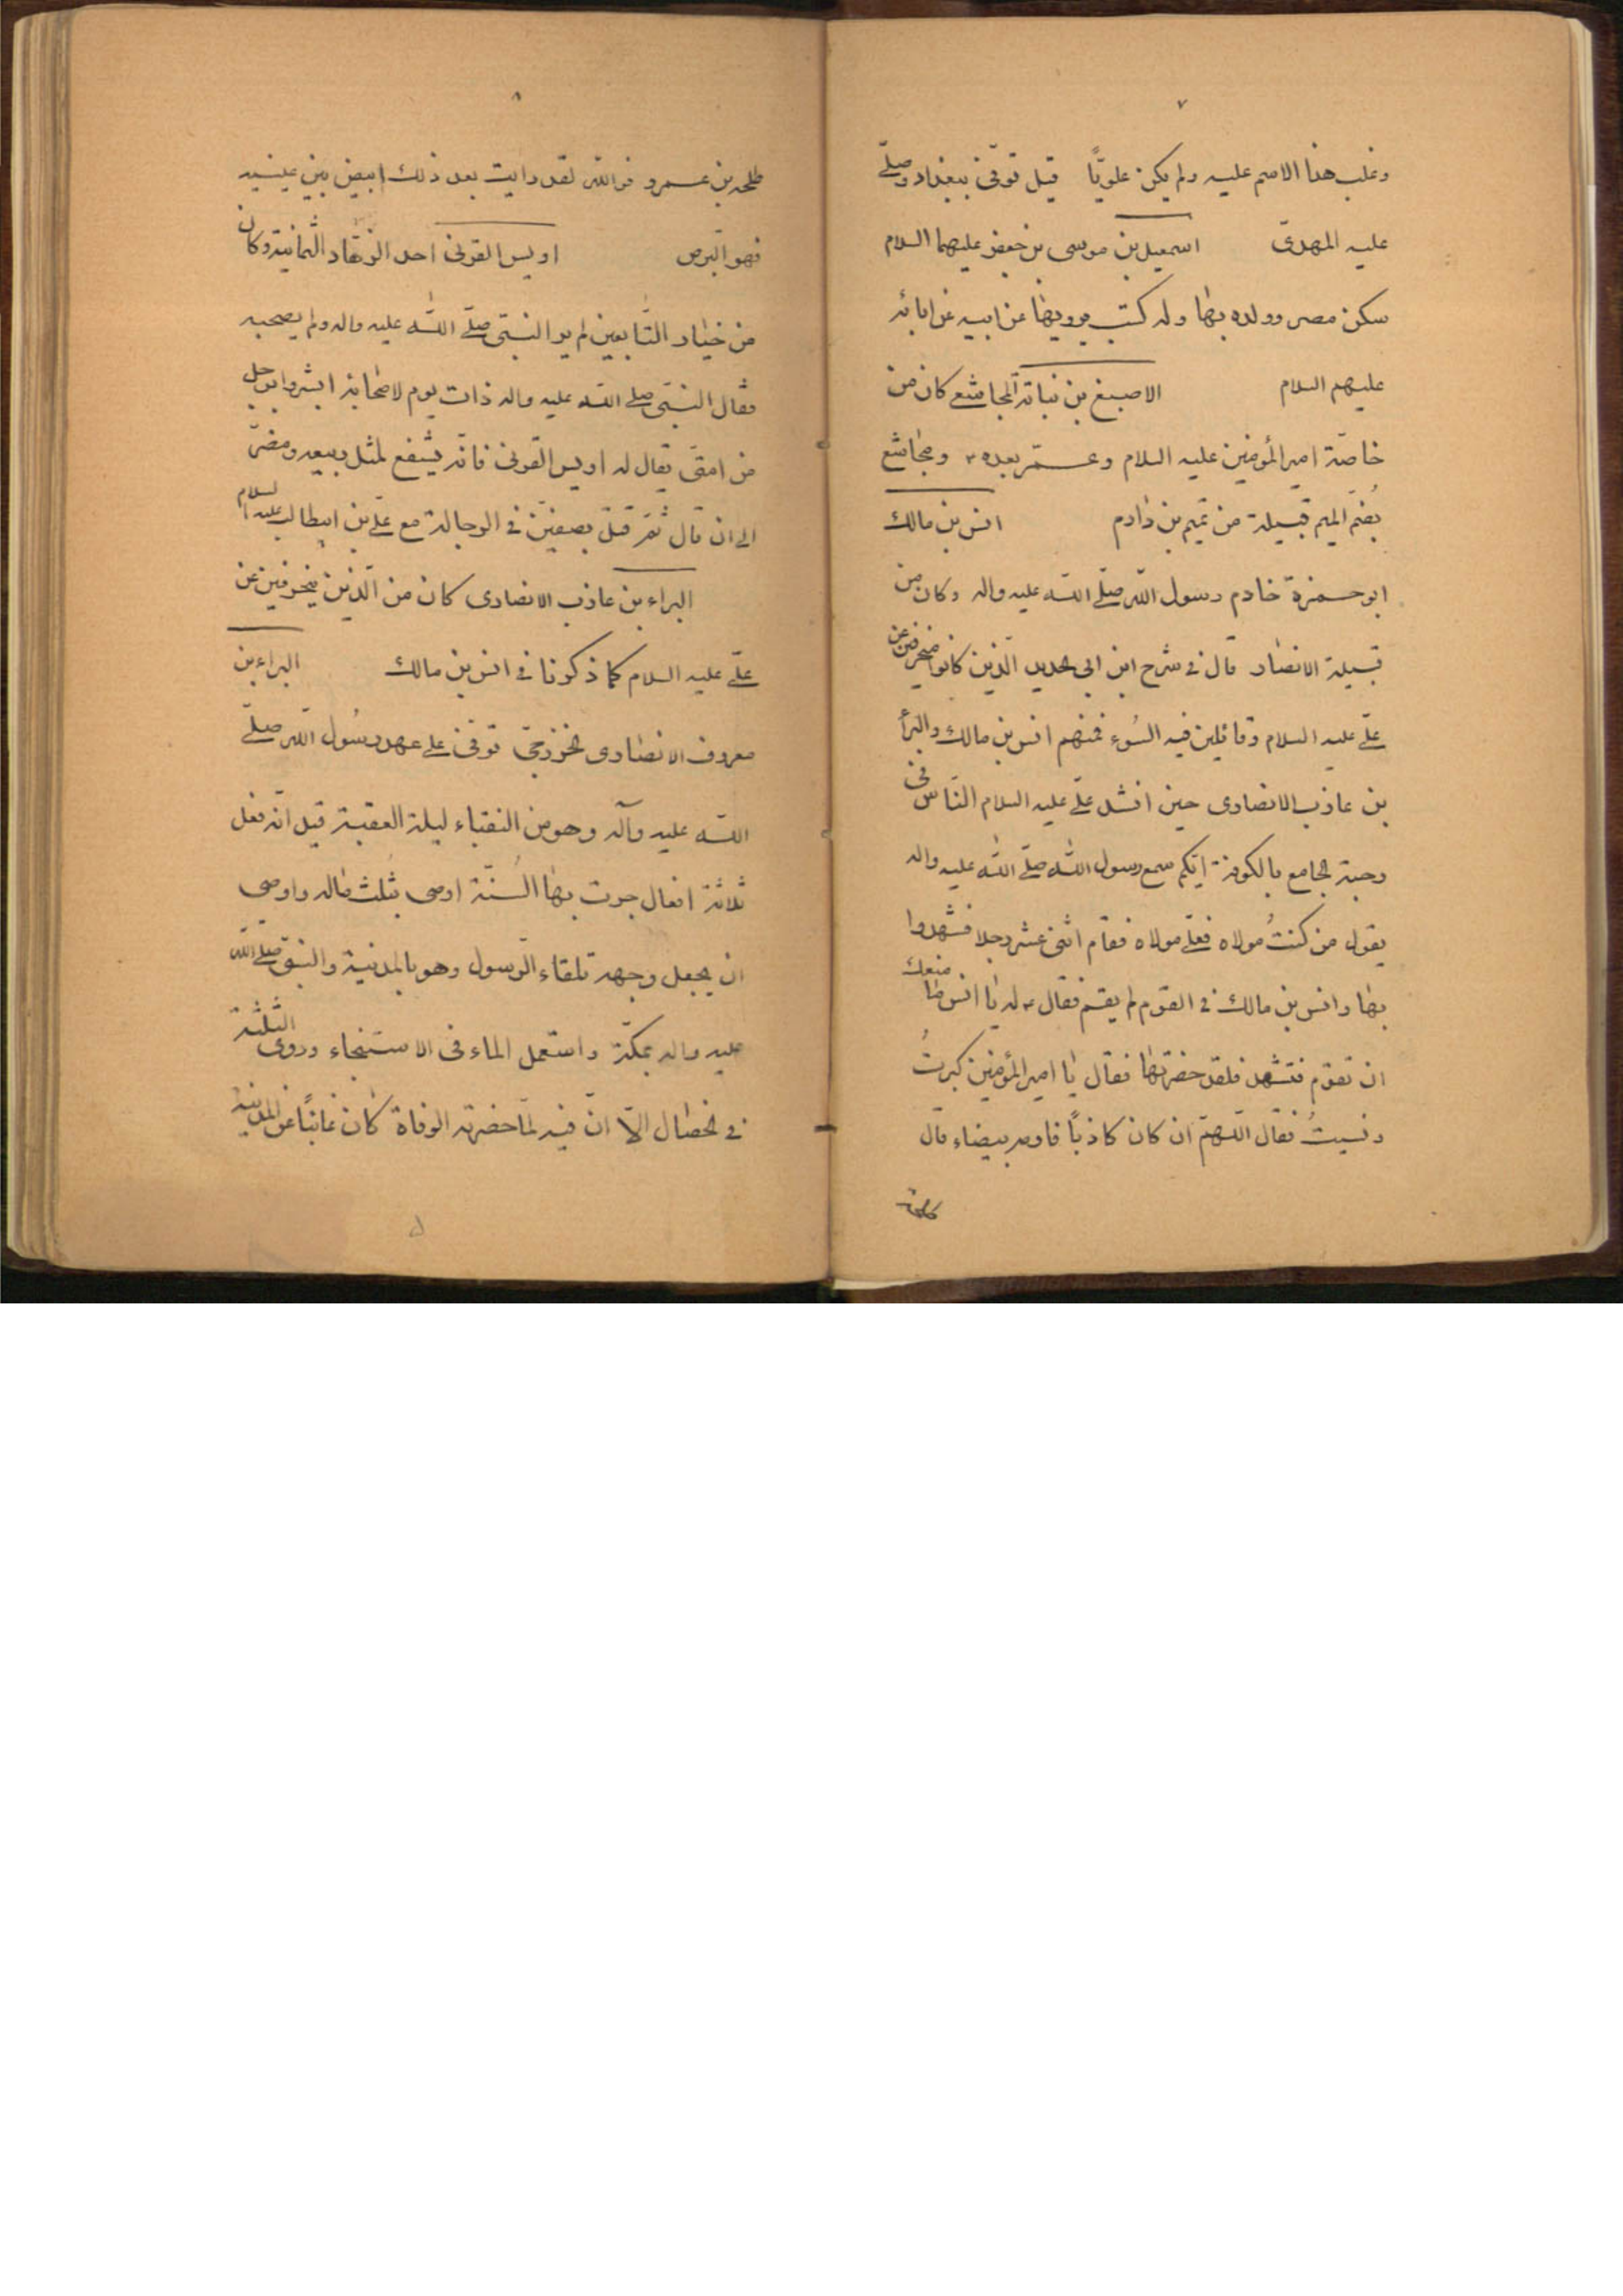 ٧
وغلب هذا الاسم عليه ولم يكن علويّاً قيل توفّى ببغداد وصلّى
عليه المهدىّ اسمعيل بن موسى بن جعفر عليهما السلام
سكن مصر وولده بها وله كتب يرويها عن ابيه عن ابائه
عليهم السلام الاصبغ بن نباتة المجاشع كان من
خاصّة امير المؤمنين عليه السلام وعمّر بعده ومجاشع
بضمّ الميم قبيلة من تميم بن دارم انس بن مالك
ابو حمزة خادم رسول الله صلّى الله عليه واله وكان من
قبيلة الانصار قال فى شرح ابن ابى الحديد الّذين كانوا منحرفين عن
علّى عليه السلام وقائلين فيه السُوء فمنهم انس بن مالك والبرأ
بن عاذب الانصارى حين انشد علّى عليه السلام النّاس فى
رحبة الجامع بالكوفة ايّكم سمع رسول الله صلّى الله عليه واله
يقول من كنتُ مولاه فعلّى مولاه فقام اثنى عشر رجلا فشهدوا
بها وانس بن مالك فى القوم لم يقم فقال له يا انس ما منعك
ان تقوم فتشهد فلقد حضرتها فقال يا امير المؤمنين كبرتُ
ونسيتُ فقال اللّهمّ ان كان كاذباً فارمه ببيضاء قال
٨
طلحه بن عمرو فوالله لقد رايت بعد ذلك ابيض بين عينيه
فهو البرص اويس القرنى احد الزهّاد الثمانية وكان
من خيار التّابعين لم ير النبىّ صلّى اللّه عليه واله ولم يصحبه
فقال النبىّ صلى الله عليه واله ذات يوم لاصحابه ابشروا برجل
من امتى يقال له اويس القرنى فانّه يشفع لمثل ربيعه ومضرّ
الى ان قال ثمّ قتل بصفيّن فى الرجالة مع علّى بن ابيطالب عليه السلام
البراء بن عاذب الانصارى كان من الّذين منحرفين عن
علّى عليه السلام كما ذكرنا فى انس بن مالك البراء بن
معروف الانصارى الخزرجىّ توفى على عهد رسُول الله صلّى
اللّه عليه وآله وهو من النقباء ليلة العقبة قيل انّه فعل
ثلاثة افعال جرت بها السُنّة اوصى بثلث ماله واوصى
ان يجعل وجهه تلقاء الرّسول وهو بالمدنية والنبىّ صلى اللّه
عليه واله بمكّة واستعمل الماء فى الاستنجاء وروى الثلثة
فى الخصال الاّ انّ فيه لمّا حضرته الوفاة كان غائباً عن المدنية